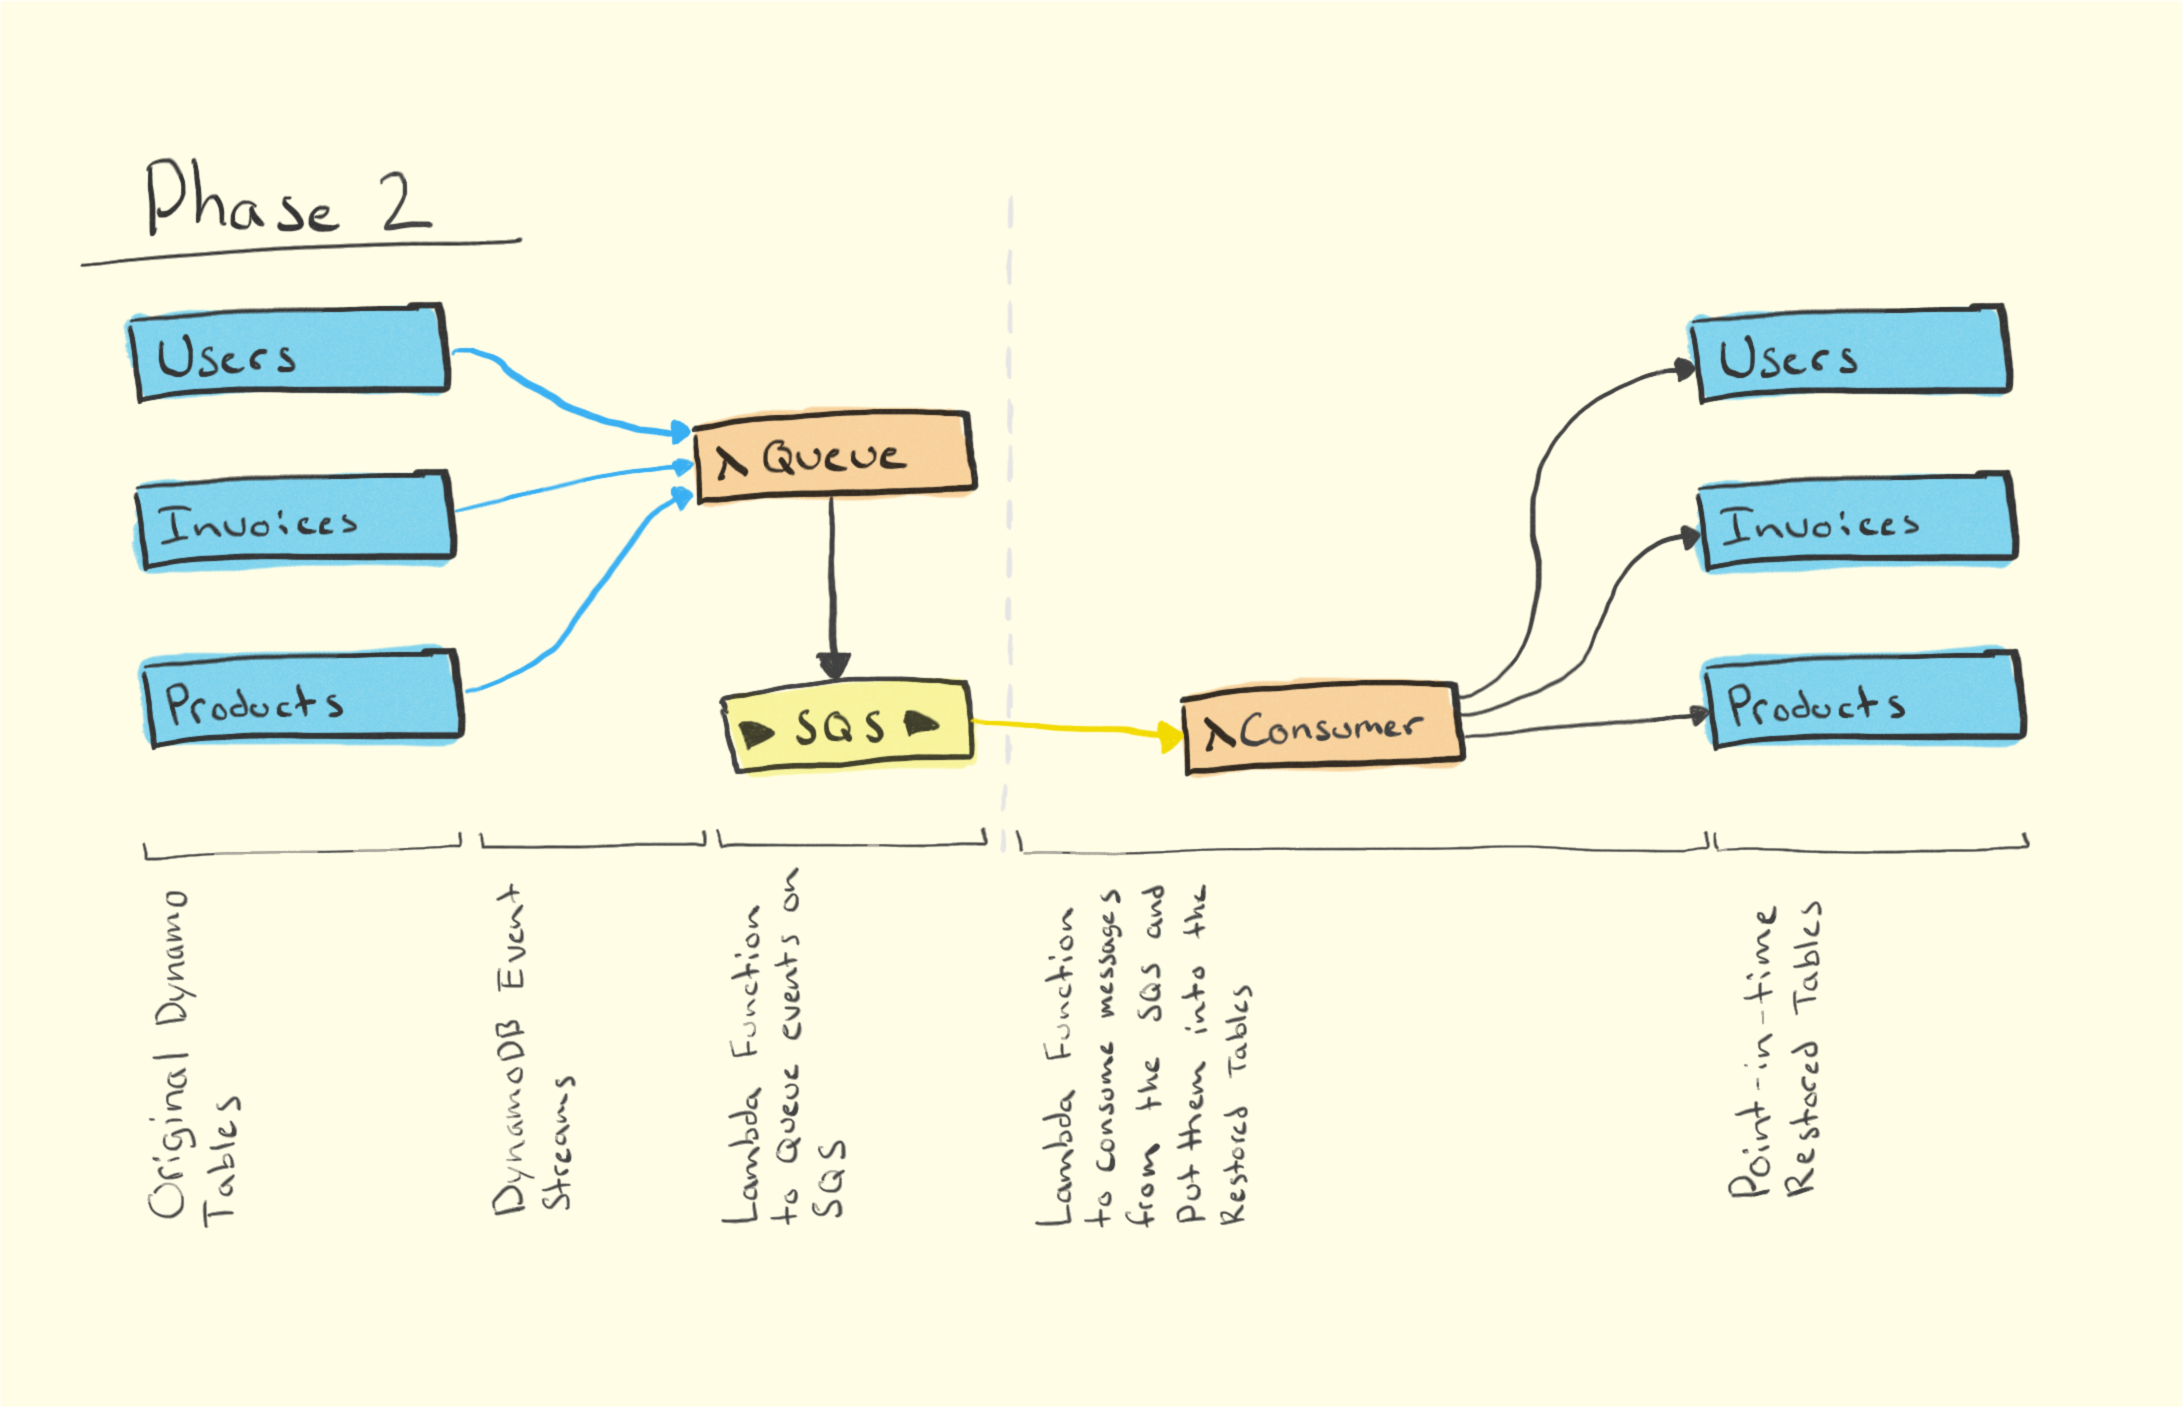 Phase 2
Users
Invoices
Products
λ Queue
SQS
λ Consumer
Users
Invoices
Products
Original Dynamo
Tables
DynamoDB Event
Streams
Lambda Function
to Queue events on
SQS
Lambda Function
to consume messages
from the SQS and
Put them into the
Restored Tables
Point-in-time
Restored Tables